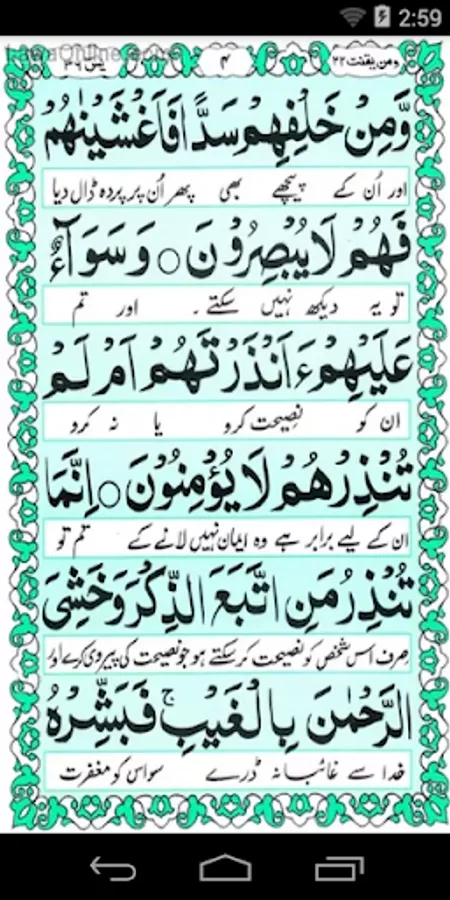 2:59
ومن یقنت ٢٢ ۴ یٰس ٣٦
وَّمِنْ خَلْفِهِمْ سَدًّا فَاَغْشَيْنٰهُمْ
اور اُن کے پیچھے بھی پھر اُن پر پردہ ڈال دیا
فَهُمْ لَا يُبْصِرُوْنَ ○ وَسَوَآءٌ
تو یہ دیکھ نہیں سکتے ۔ اور تم
عَلَيْهِمْ ءَاَنْذَرْتَهُمْ اَمْ لَمْ
ان کو نصیحت کرو یا نہ کرو
تُنْذِرْهُمْ لَا يُؤْمِنُوْنَ ○ اِنَّمَا
ان کے لیے برابر ہے وہ ایمان نہیں لانے کے تم تو
تُنْذِرُ مَنِ اتَّبَعَ الذِّكْرَ وَخَشِيَ
صرف اس شخص کو نصیحت کر سکتے ہو جو نصیحت کی پیروی کرے اور
الرَّحْمٰنَ بِالْغَيْبِ ۚ فَبَشِّرْهُ
خدا سے غائبانہ ڈرے سو اس کو مغفرت